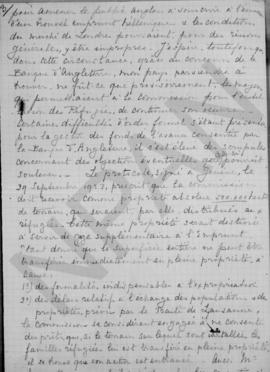 pour amener le public anglais à souscrire à l'émis-
d'un nouvel emprunt hellénique si les conditions
du marché de Londres pouvaient, pour des raisons
générales, y être impropres. J'espère, toutefois,
dans cette circonstance, grâce au concours de la
Banque d'Angleterre, mon pays parviendra à
trouver, ne fut ce que provisoirement, les moyens
qui permettraient à la Commission pour l'établ.
des Réfugiés, de continuer son œuvre.
Certaines difficultés d'ordre formel s'étant présentées
pour la gestion des fonds de l'avance consentie par
la Banque d'Angleterre, il s'est élevé des scrupules
concernant des objections éventuelles qu'on pourrait
soulever. Le protocole, signé à Genève, le
29 Septembre 1923, prescrit que la commission
doit recevoir comme propriété absolue 500.000 hectares
de terrain, qui seraient, par elle, distribués aux
réfugiés. Cette même propriété serait destinée
à servir de gage supplémentaire à l'Emprunt.
Tant donné que la superficie entière ne peut être
transférée immédiatement en pleine propriété, à
cause:
1°) des formalités indispensables à l'expropriation
2°) des délais relatifs à l'échange des populations et de
propriétés, prévus par le Traité de Lausanne,
la commission se considérait engagée à ne consentir
du prêt, que si le terrain sur lequel sont installées les
familles réfugiées, lui est transféré en pleine propriété